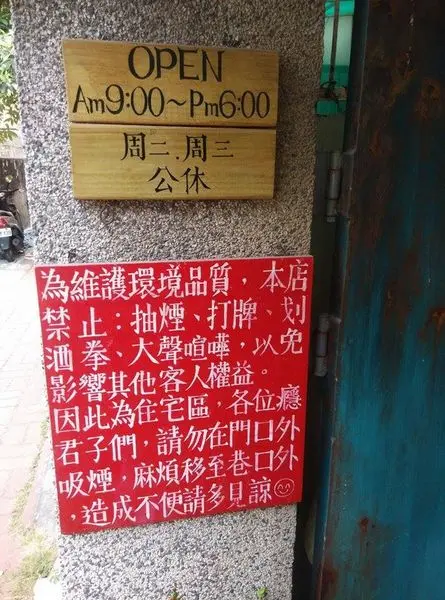 OPEN
Am9:00~Pm6:00
周二.周三
公休
為維護環境品質，本店
禁止：抽煙、打牌、划
酒拳、大聲喧嘩，以免
影響其他客人權益。
因此為住宅區，各位癮
君子們，請勿在門口外
吸煙，麻煩移至巷口外
，造成不便請多見諒